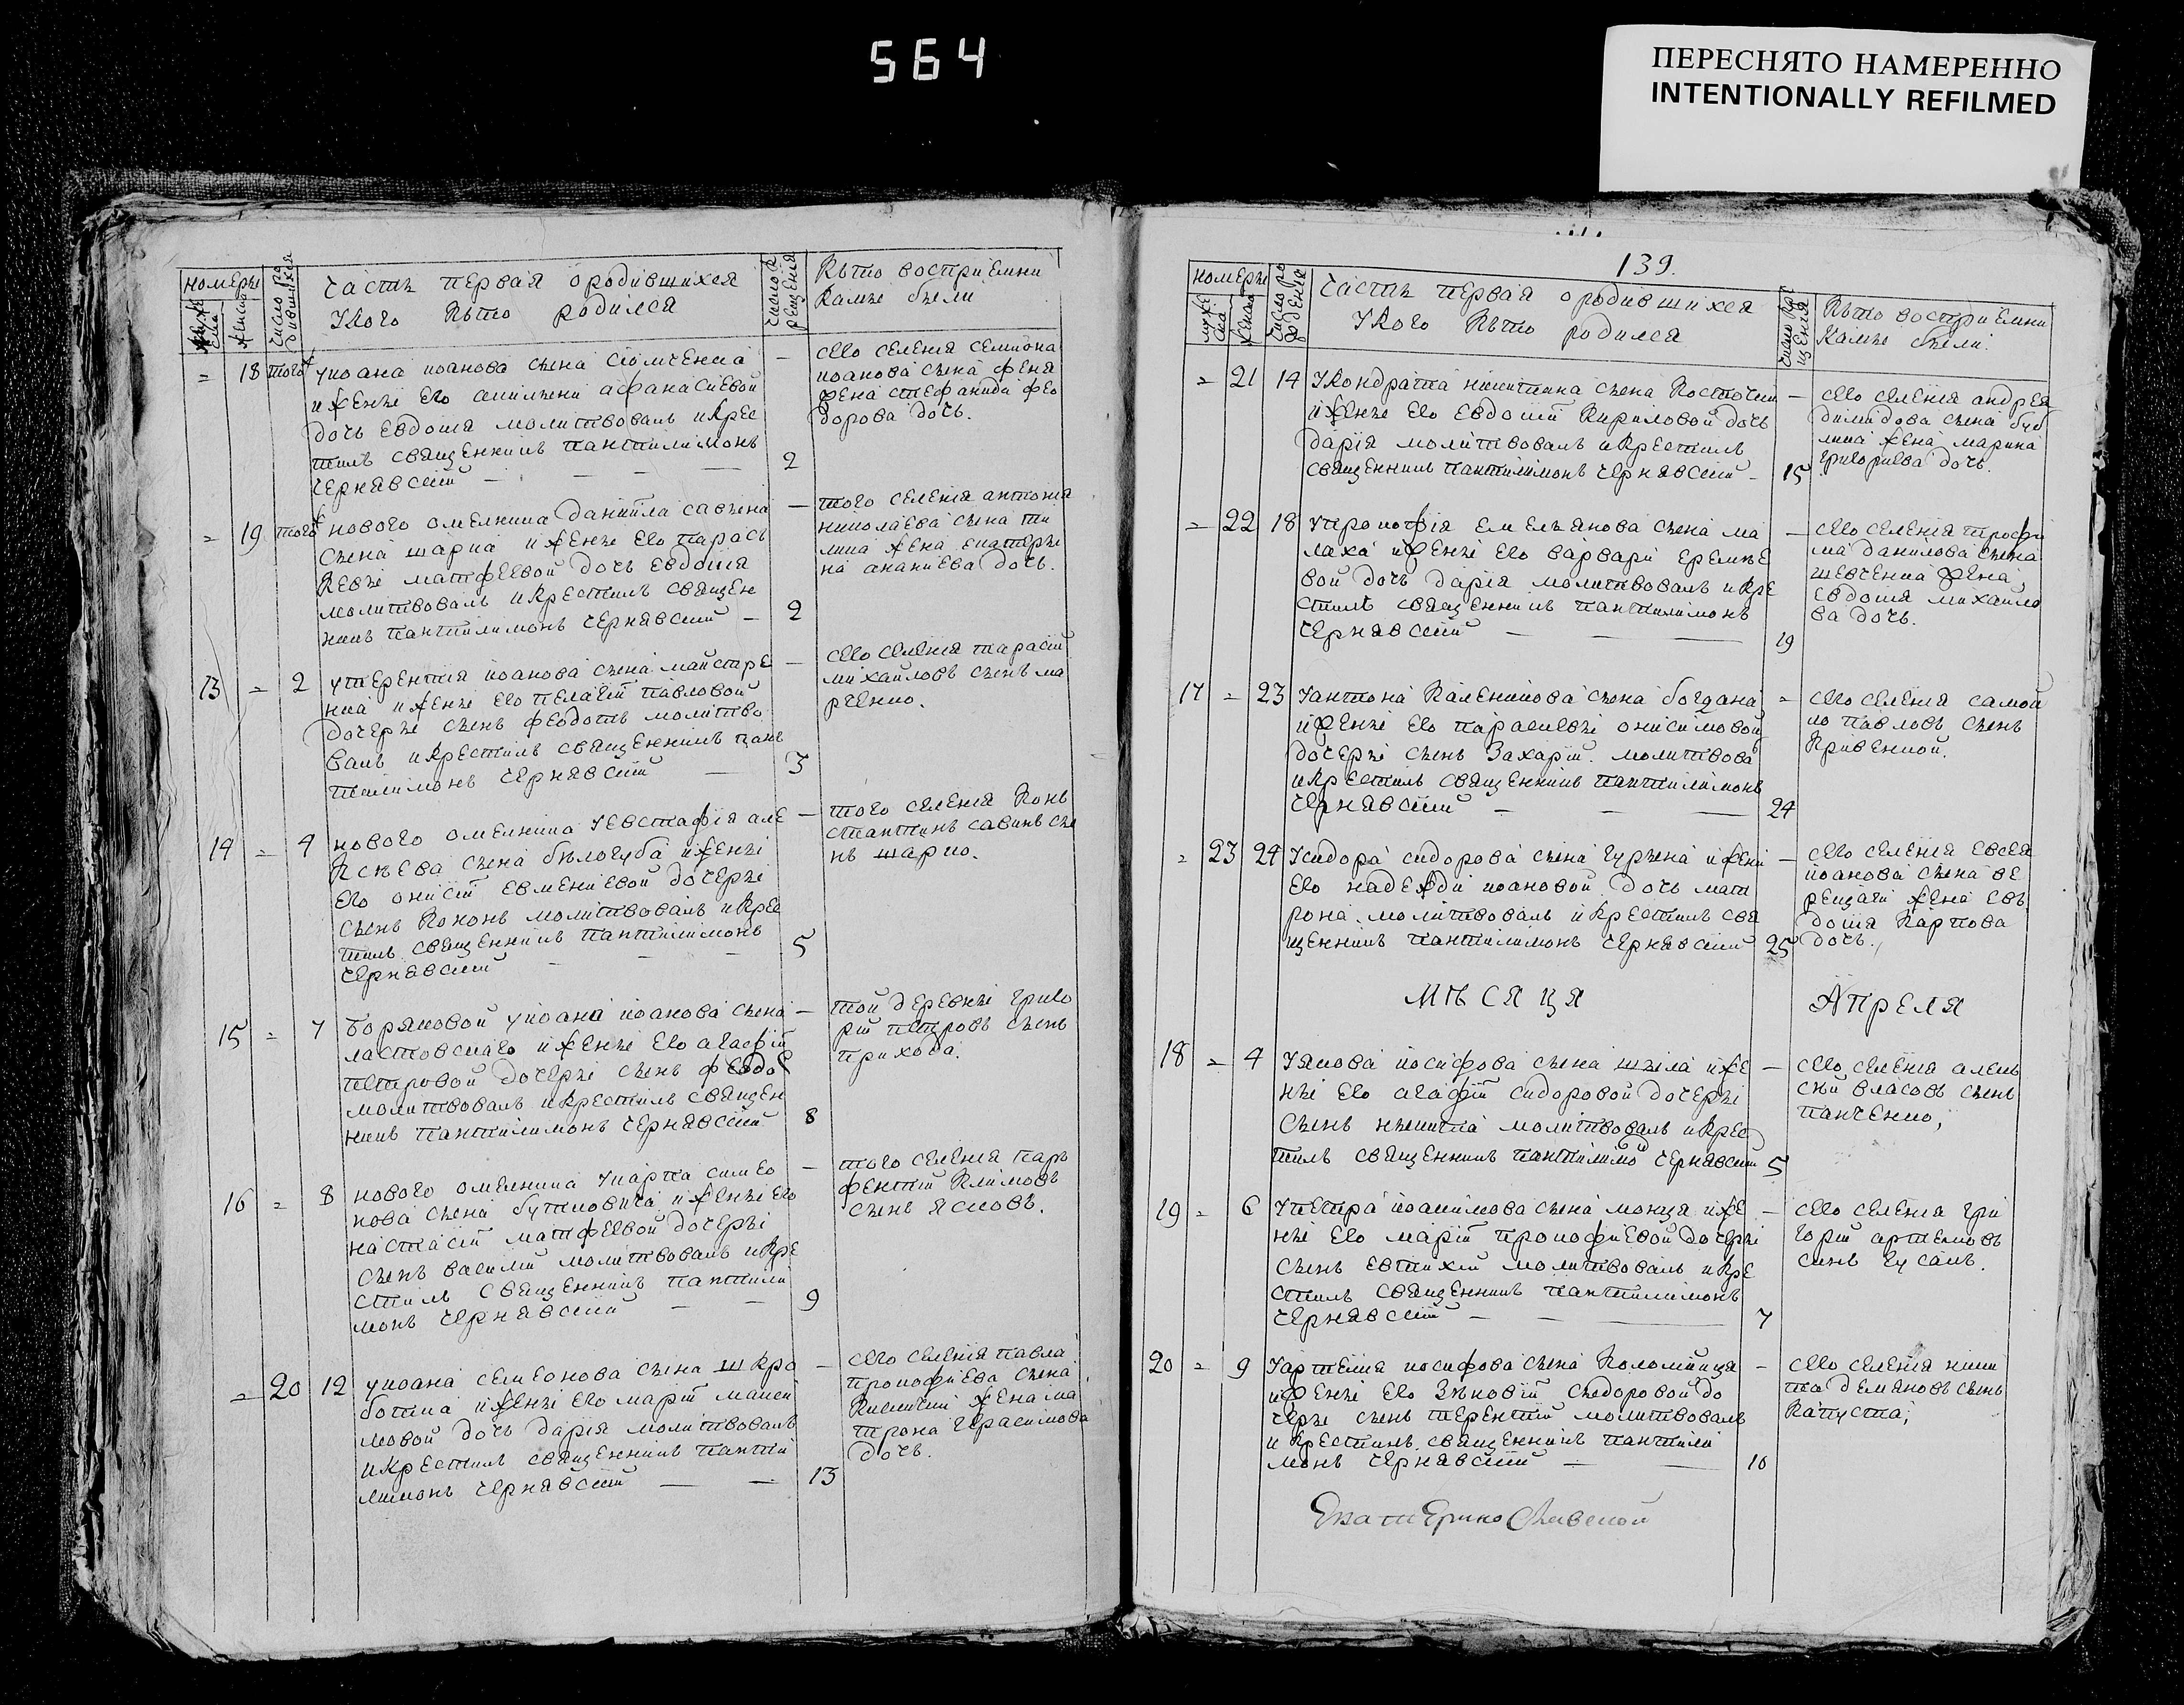 564
ПЕРЕСНЯТО НАМЕРЕННО
INTENTIONALLY REFILMED
номеръ
Часть первая ородившихся
Укого къто родился
Къто восприемни
камъ были
= 18 того уиоана иоанова сына
иженъ его афанасиевой
дочь евдокия молитвовалъ икрес
тилъ священникъ пантилимонъ 2
чернявскій
сего селения семиона
иоанова сына
стефанида фео
дорова дочь.
= 19 того нового омелника даниила савина
сына шарка иженъ его параск
кевъ матфеевой дочь евдокия
молитвовалъ икрестилъ священ
никъ пантилимонъ чернявскій 2
того селения антония
николаева сына
жена екатери
на ананиева дочь.
13 = 2 утерентия иоанова сына майстре
нка иженъ его пелагіи павловой
дочеръ сынъ феодотъ молитво
валъ икрестилъ священникъ пань
тилимонъ чернявскій 3
сего селения тарасій
михайловъ сынъ ма
рченко.
14 = 4 нового омелника уевстафія але
ксѣева сына бѣлогуба иженъ
его онисіи евмениевой дочеръ
сынъ кононъ молитвовалъ икрес
тилъ священникъ пантилимонъ 5
чернявскій
того селения конь
стантинъ савинъ сы
нъ шарко.
15 = 7 уиоана иоанова сына
ластовскаго иженъ его агафіи
петровой дочеръ сынъ
молитвовалъ икрестилъ священ
никъ пантилимонъ чернявскій 8
той деревнъ григо
рій петровъ сынъ
прихода.
16 = 8 нового омелника укарпа симео
нова сына бутковича иженъ его
настасіи матфеевой дочеръ
сынъ василій молитвовалъ икре
стилъ священникъ пантили
монъ чернявскій 9
того селения парь
фентій климовъ
сынъ ясковъ.
= 20 12 уиоана семеонова сына шкро
ботка иженъ его маріи макси
мовой дочь дарія молитвовалъ
икрестилъ священникъ панти
лимонъ чернявскій 13
сего селения павла
прокофиева сына
жена ма
трона герасимова
дочь.
139.
номеръ
Часть первая ородившихся
Укого къто родился
Къто восприемни
камъ были.
= 21 14 Укондрата никитина сына
иженъ его евдокіи кириловой дочь
дарія молитвовалъ икрестилъ
священникъ пантилимонъ чернявскій 15
сего селения андрея
димидова сына
жена марина
григориева дочь.
= 22 18 Упрокофія емельянова сына ма
лаха иженъ его варвари еремѣе
вой дочь дарія молитвовалъ икре
стилъ священникъ пантилимонъ
чернявскій 19
сего селения трофи
ма данилова сына
шевченка жена,
евдокия михайло
ва дочь.
17 = 23 Уантона каленикова сына богдана
иженъ его параскевъ онисимовой
дочеръ сынъ захарій. молитвова
икрестилъ священникъ пантилимонъ
чернявскій 24
сего селения самой
ло павловъ сынъ
кривенкой.
= 23 24 Усидора сидорова сына гурына ижени
его надежди иоановой дочь мат
рона. молитвовалъ икрестилъ свя
щенникъ пантилимонъ чернявскій 25
сего селения евсея
иоанова сына ве
рещаги жена евь
докия карпова
дочь.
МѢСЯЦЯ Апреля
18 = 4 Уякова иосифова сына шила иже
нъ его агафіи сидоровой дочеръ
сынъ никита молитвовалъ икрес
тилъ священникъ пантилимо чернявскій 5
сего селения алекь
сѣй власовъ сынъ
панченко,
19 = 6 Упетра иоакимова сына монця иже
нъ его маріи прокофиевой дочеръ
сынъ евтихій молитвовалъ икре
стилъ священникъ пантилимонъ
чернявскій 7
сего селения гри
горій артемовъ
синъ гусакъ.
20 = 9 Уартемия иосифова сына коломийця
иженъ его зѣновіи сыдоровой до
черъ сынъ терентій молитвовалъ
икрестинъ священникъ пантили
монъ чернявскій 10
сего селения ники
та демяновъ сынъ
капуста,
Екатеринославской